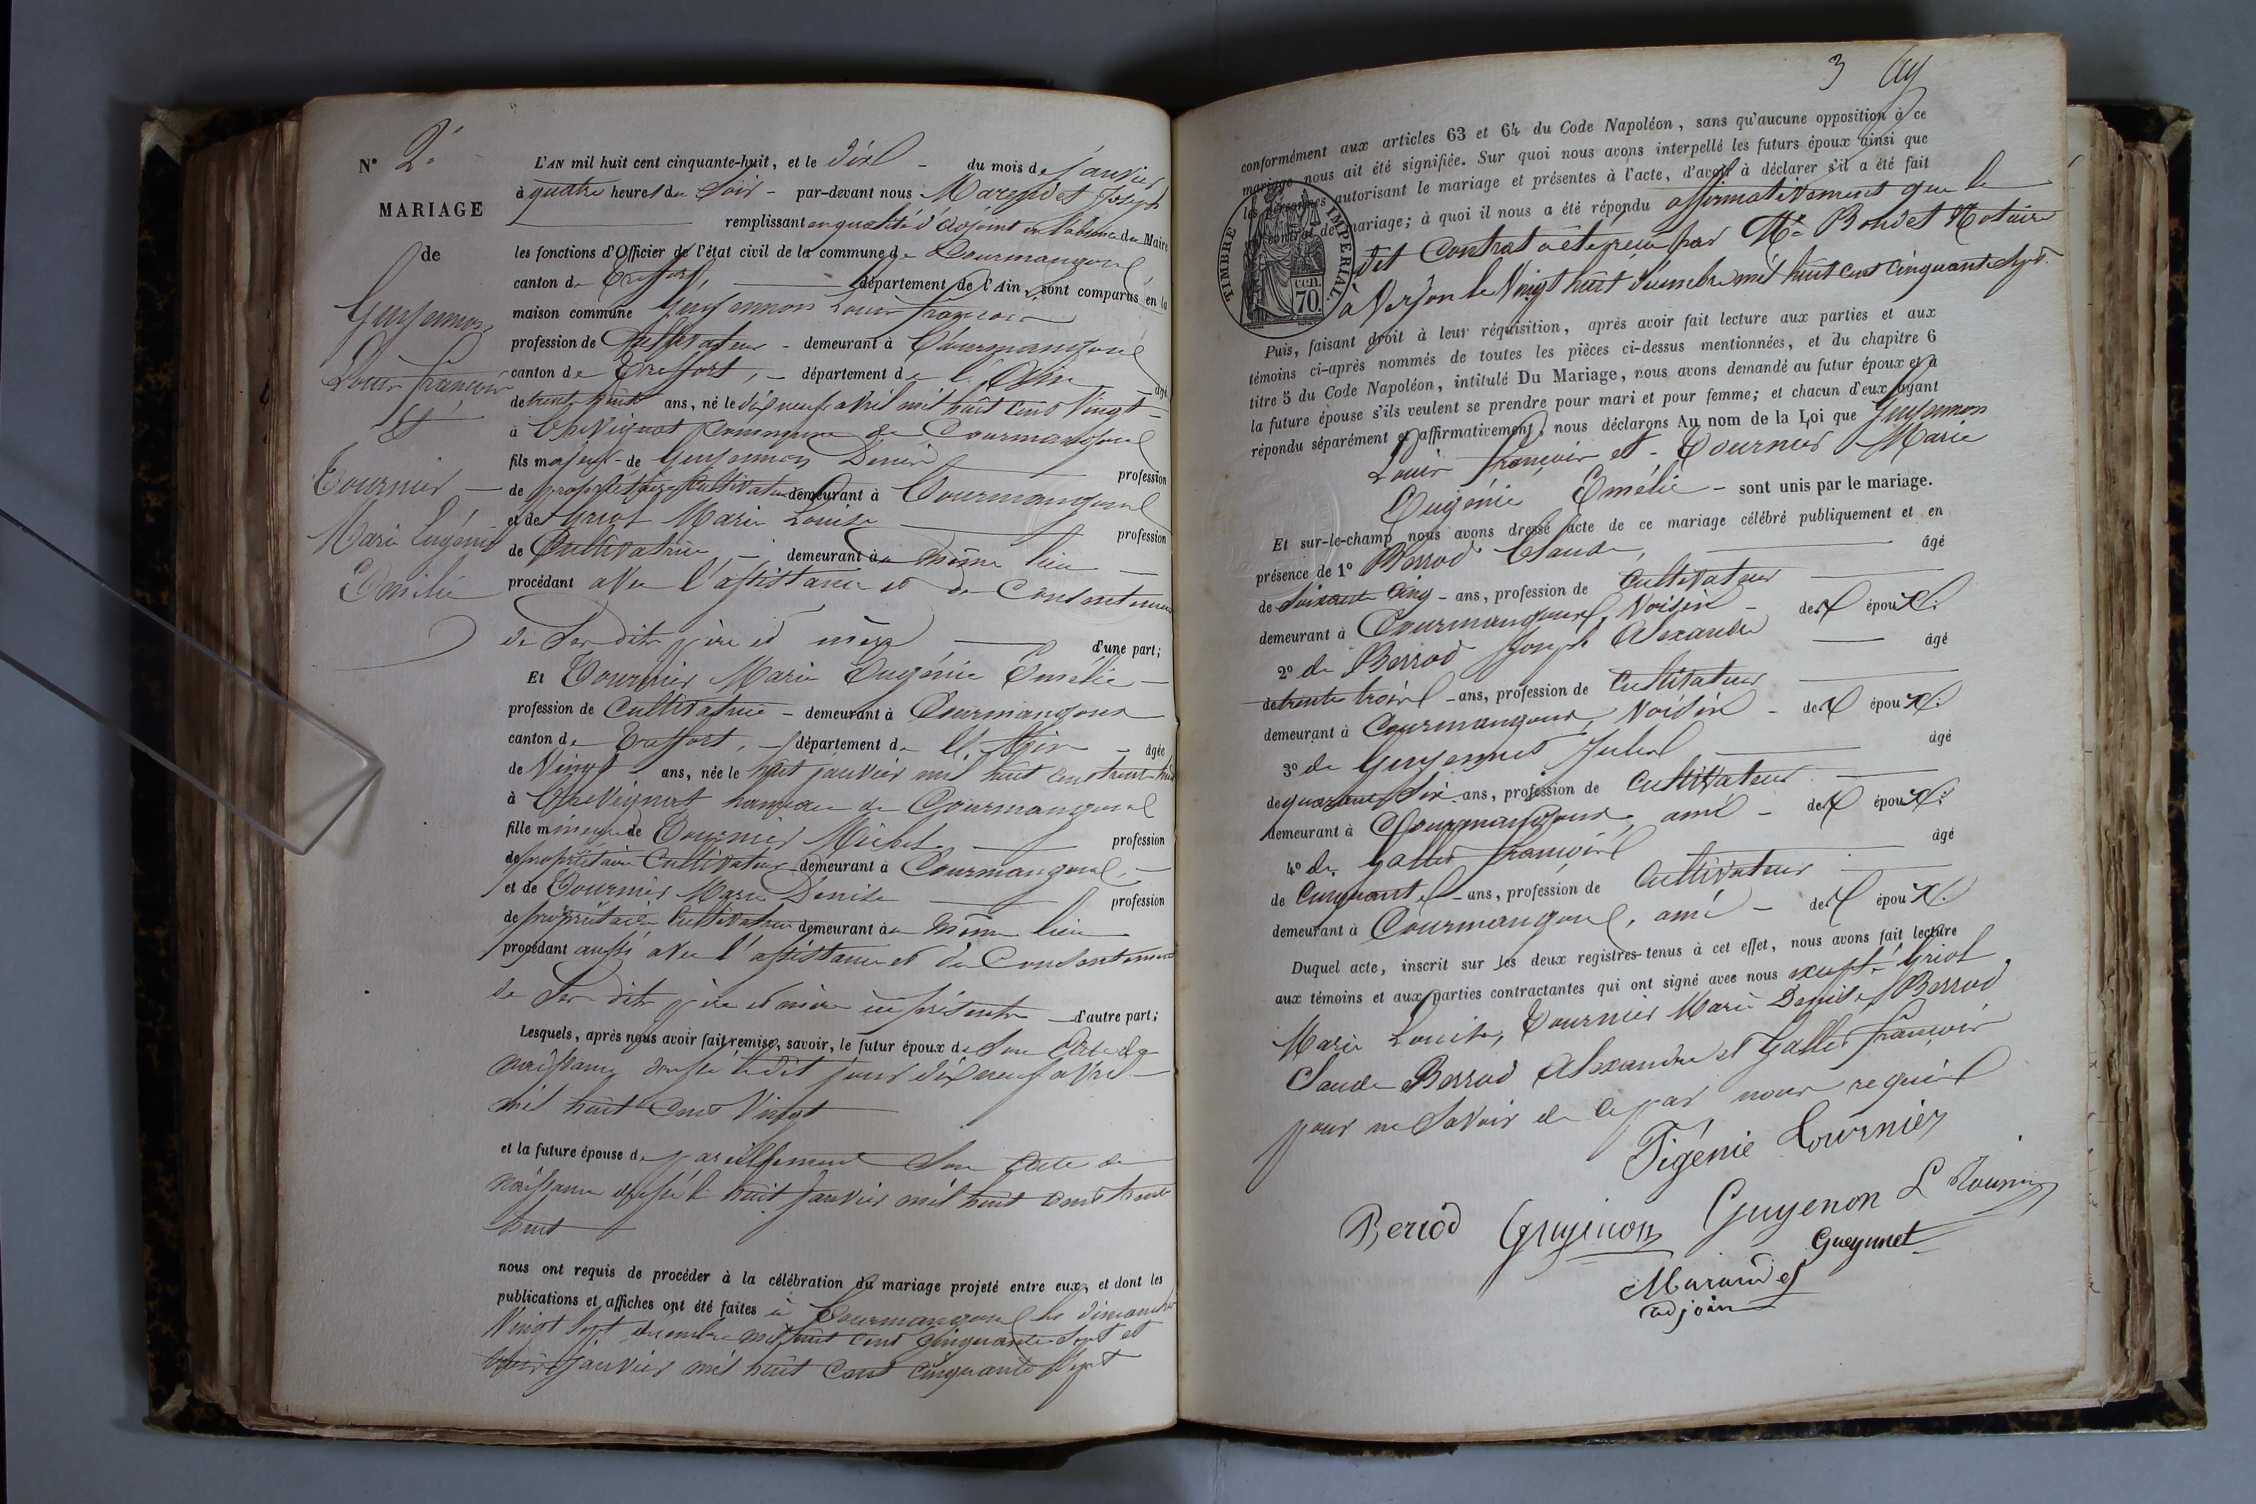 N° 2.
MARIAGE
de
Guyennon
Louis françois
et
Tournier
Marie Eugénie
Emélie
L'AN mil huit cent cinquante-huit, et le dix du mois de Janvier
à quatre heures du Soir par-devant nous Marandet Joseph
remplissant en qualité d'adjoint en l'absence du Maire
les fonctions d'Officier de l'état civil de la commune de Courmangoux
canton de Treffort, département de l'Ain, sont comparus en la
maison commune Guyennon Louis françois
profession de Cultivateur demeurant à Courmangoux
canton de Treffort, département de l'Ain âgé
de trente huit ans, né le dix neuf avril mil huit cent Vingt
à Chevignat Commune de Courmangoux
fils majeur de Guyennon Denis profession
de propriétaire Cultivateur demeurant à Courmangoux
et de Griot Marie Louise profession
de Cultivatrice demeurant au même lieu
procédant avec l'assistance et du Consentement
de Ses dits père et mère d'une part;
Et Tournier Marie Eugénie Emélie
profession de Cultivatrice demeurant à Courmangoux
canton de Treffort, département de l'Ain âgée
de Vingt ans, née le huit janvier mil huit cent trente huit
à Chevignat hameau de Courmangoux
fille mineure de Tournier Michel profession
de propriétaire Cultivateur demeurant à Courmangoux
et de Tournier Marie Denise profession
de propriétaire Cultivatrice demeurant au même lieu
procédant aussi avec l'assistance et du Consentement
de Ses dits père et mère ici présents d'autre part;
Lesquels, après nous avoir fait remise, savoir, le futur époux de Son acte de
naissance dressé le dit jour dix neuf avril
mil huit Cent Vingt
et la future épouse de pareillement Son acte de
naissance dressé le huit Janvier mil huit cent trente
huit
nous ont requis de procéder à la célébration du mariage projeté entre eux, et dont les
publications et affiches ont été faites à Courmangoux les dimanches
Vingt Sept decembre mil huit cent Cinquante Sept et
trois Janvier mil huit Cent Cinquante Sept
3
conformément aux articles 63 et 64 du Code Napoléon, sans qu'aucune opposition à ce
mariage nous ait été signifiée. Sur quoi nous avons interpellé les futurs époux ainsi que
les personnes autorisant le mariage et présentes à l'acte, d'avoir à déclarer s'il a été fait
contrat de mariage; à quoi il nous a été répondu affirmativement que le
dit Contrat a été reçu par Me Bondet Notaire
à Verjon le Vingt huit décembre mil huit cent cinquante Sept.
TIMBRE IMPÉRIAL
70 cen.
Puis, faisant droit à leur réquisition, après avoir fait lecture aux parties et aux
témoins ci-après nommés de toutes les pièces ci-dessus mentionnées, et du chapitre 6
titre 5 du Code Napoléon, intitulé Du Mariage, nous avons demandé au futur époux et à
la future épouse s'ils veulent se prendre pour mari et pour femme; et chacun d'eux ayant
répondu séparément et affirmativement, nous déclarons Au nom de la Loi que Guyennon
Louis françois et Tournier Marie
Eugénie Emélie sont unis par le mariage.
Et sur-le-champ nous avons dressé acte de ce mariage célébré publiquement et en
présence de 1° Berrod Claude, âgé
de Soixante Cinq ans, profession de Cultivateur
demeurant à Courmangoux, Voisin des époux.
2° de Berrod Joseph Alexandre âgé
de trente trois ans, profession de Cultivateur
demeurant à Courmangoux, Voisin des époux.
3° de Guyennet Jules âgé
de quarante Six ans, profession de Cultivateur
demeurant à Courmangoux, ami des époux.
4° de Gallet françois âgé
de Cinquante ans, profession de Cultivateur
demeurant à Courmangoux, ami des époux.
Duquel acte, inscrit sur les deux registres tenus à cet effet, nous avons fait lecture
aux témoins et aux parties contractantes qui ont signé avec nous excepté Griot
Marie Louise, Tournier Marie Denise, Berrod
Claude Berrod Alexandre et Gallet françois
pour ne Savoir de ce par nous requis
Tigénie tournier
Berrod Guyenon Guyenon L tournier
Gueynnet
Marandet
adjoint